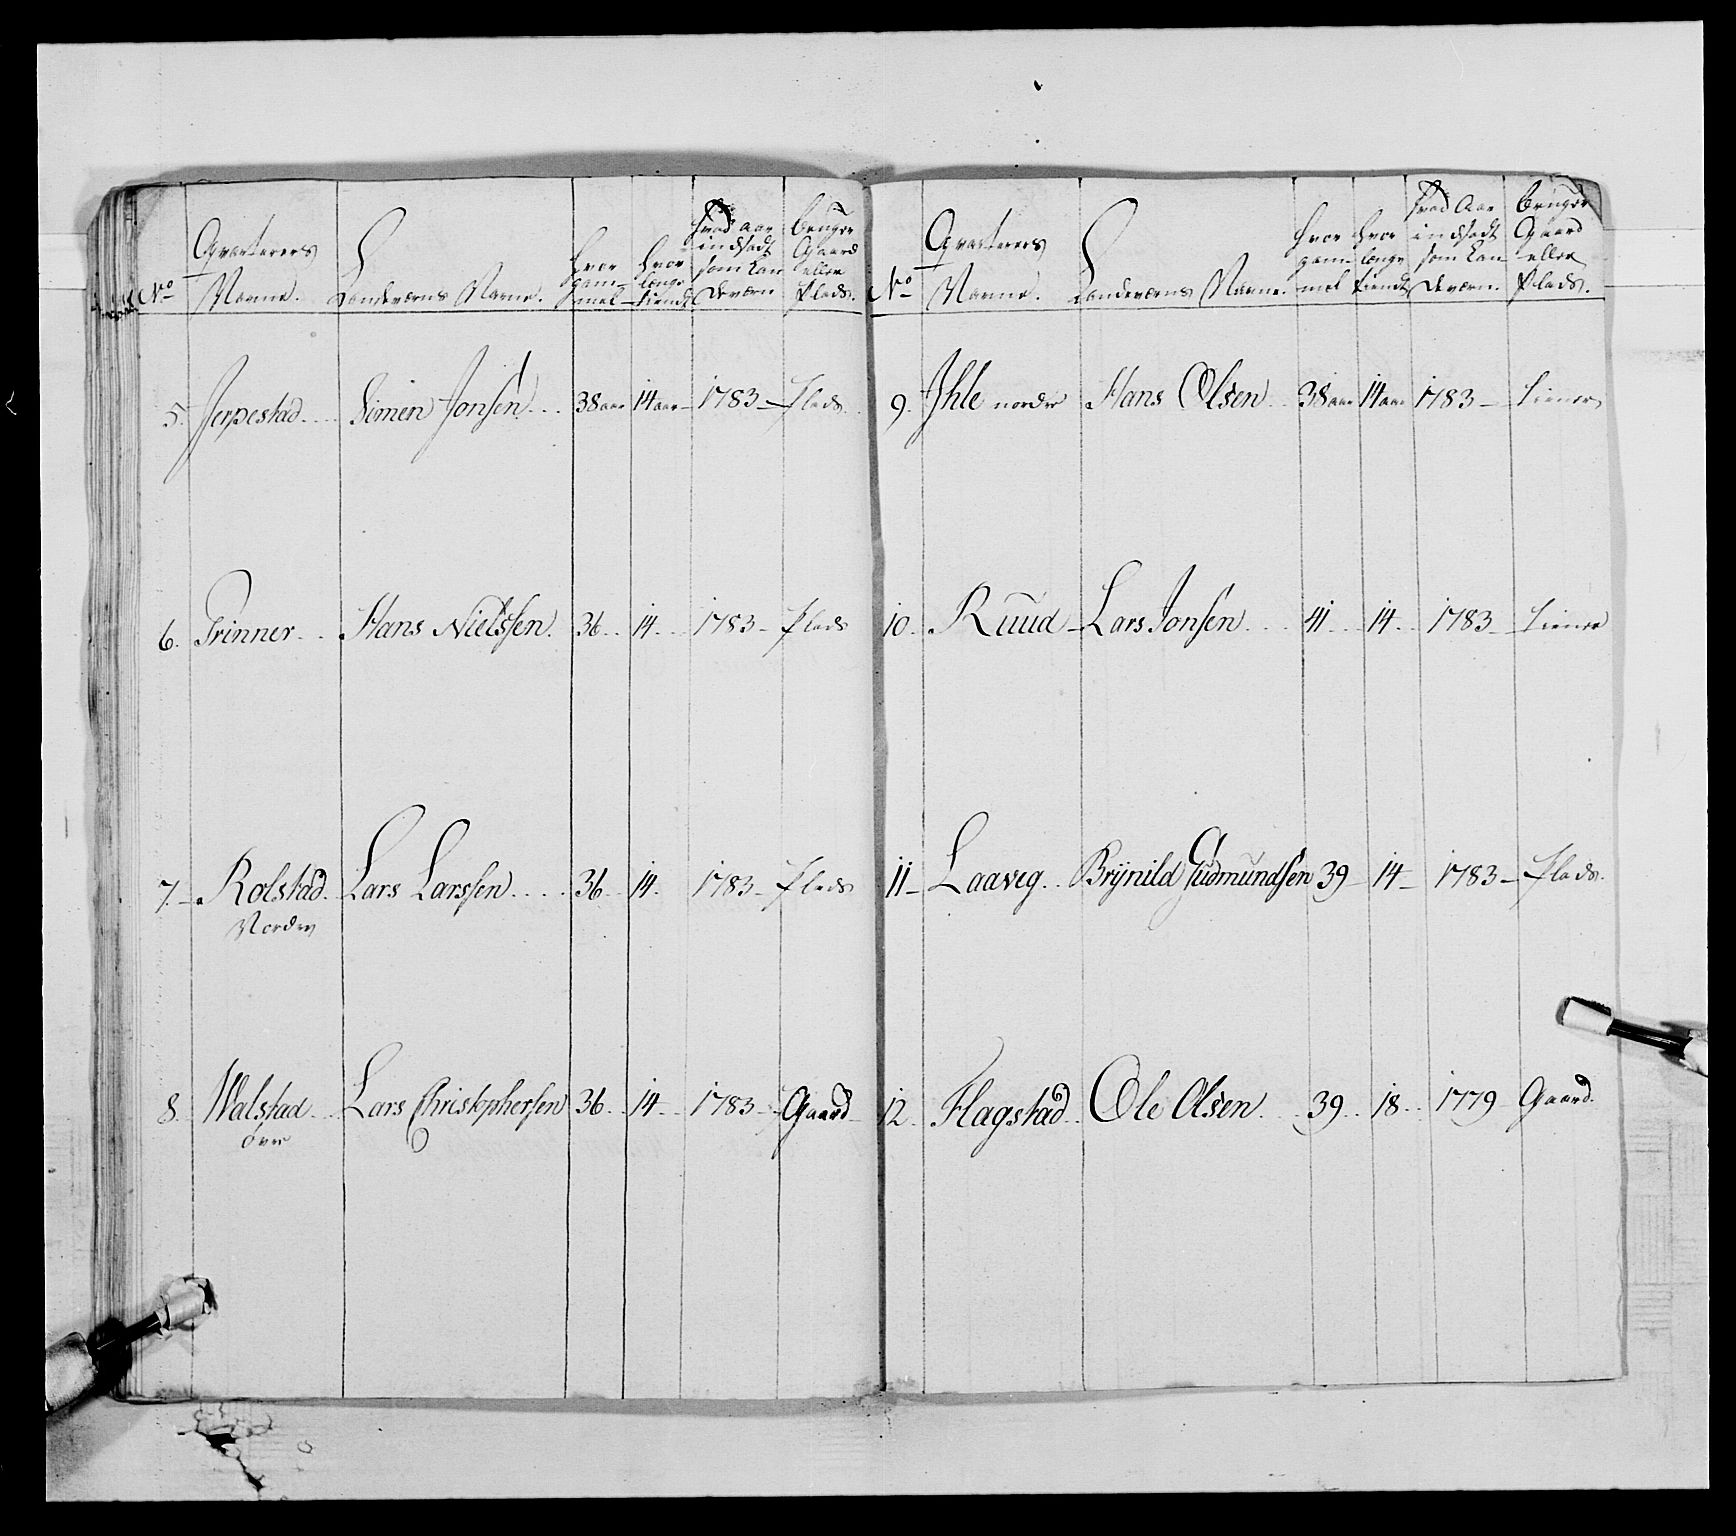 No
Qvarterers
Navne.
Landeværns Navne.
hvor
gam-
mel
hvor
længe
tiendt
hvad aar
indsadt
som Lan
deværn
bruger
Gaard
eller
Plads.
5. Jerpestad... Simen Jonsen... 38 aar 14 aar 1783 – Plads
6. Trinner... Hans Nielssen. 36.. 14... 1783 – Plads
7. Rolstad. Lars Larssen.... 36 14. 1783 – Plads
Nordre
8. Walstad. Lars Christophersen 36.. 14.. 1783 – Gaard
øvre
No
Qvarterers
Navne.
Landeværns Navne.
hvor
gam-
mel
hvor
længe
tiendt
hvad Aar
indsadt
som Lan
deværn.
bruger
Gaard
eller
Plads.
9. Ihle nordre Hans Olsen.. 38 aar 14 aar 1783 – tiener
10. Ruud – Lars Jonsen.... 41... 14.. 1783 – tiener
11 – Laaveg.. Brÿnild Gudmundsen 39 – 14 – 1783 – Plads.
12. Flagstad.. Ole Olsen... 39.. 18.. 1779 Gaard.